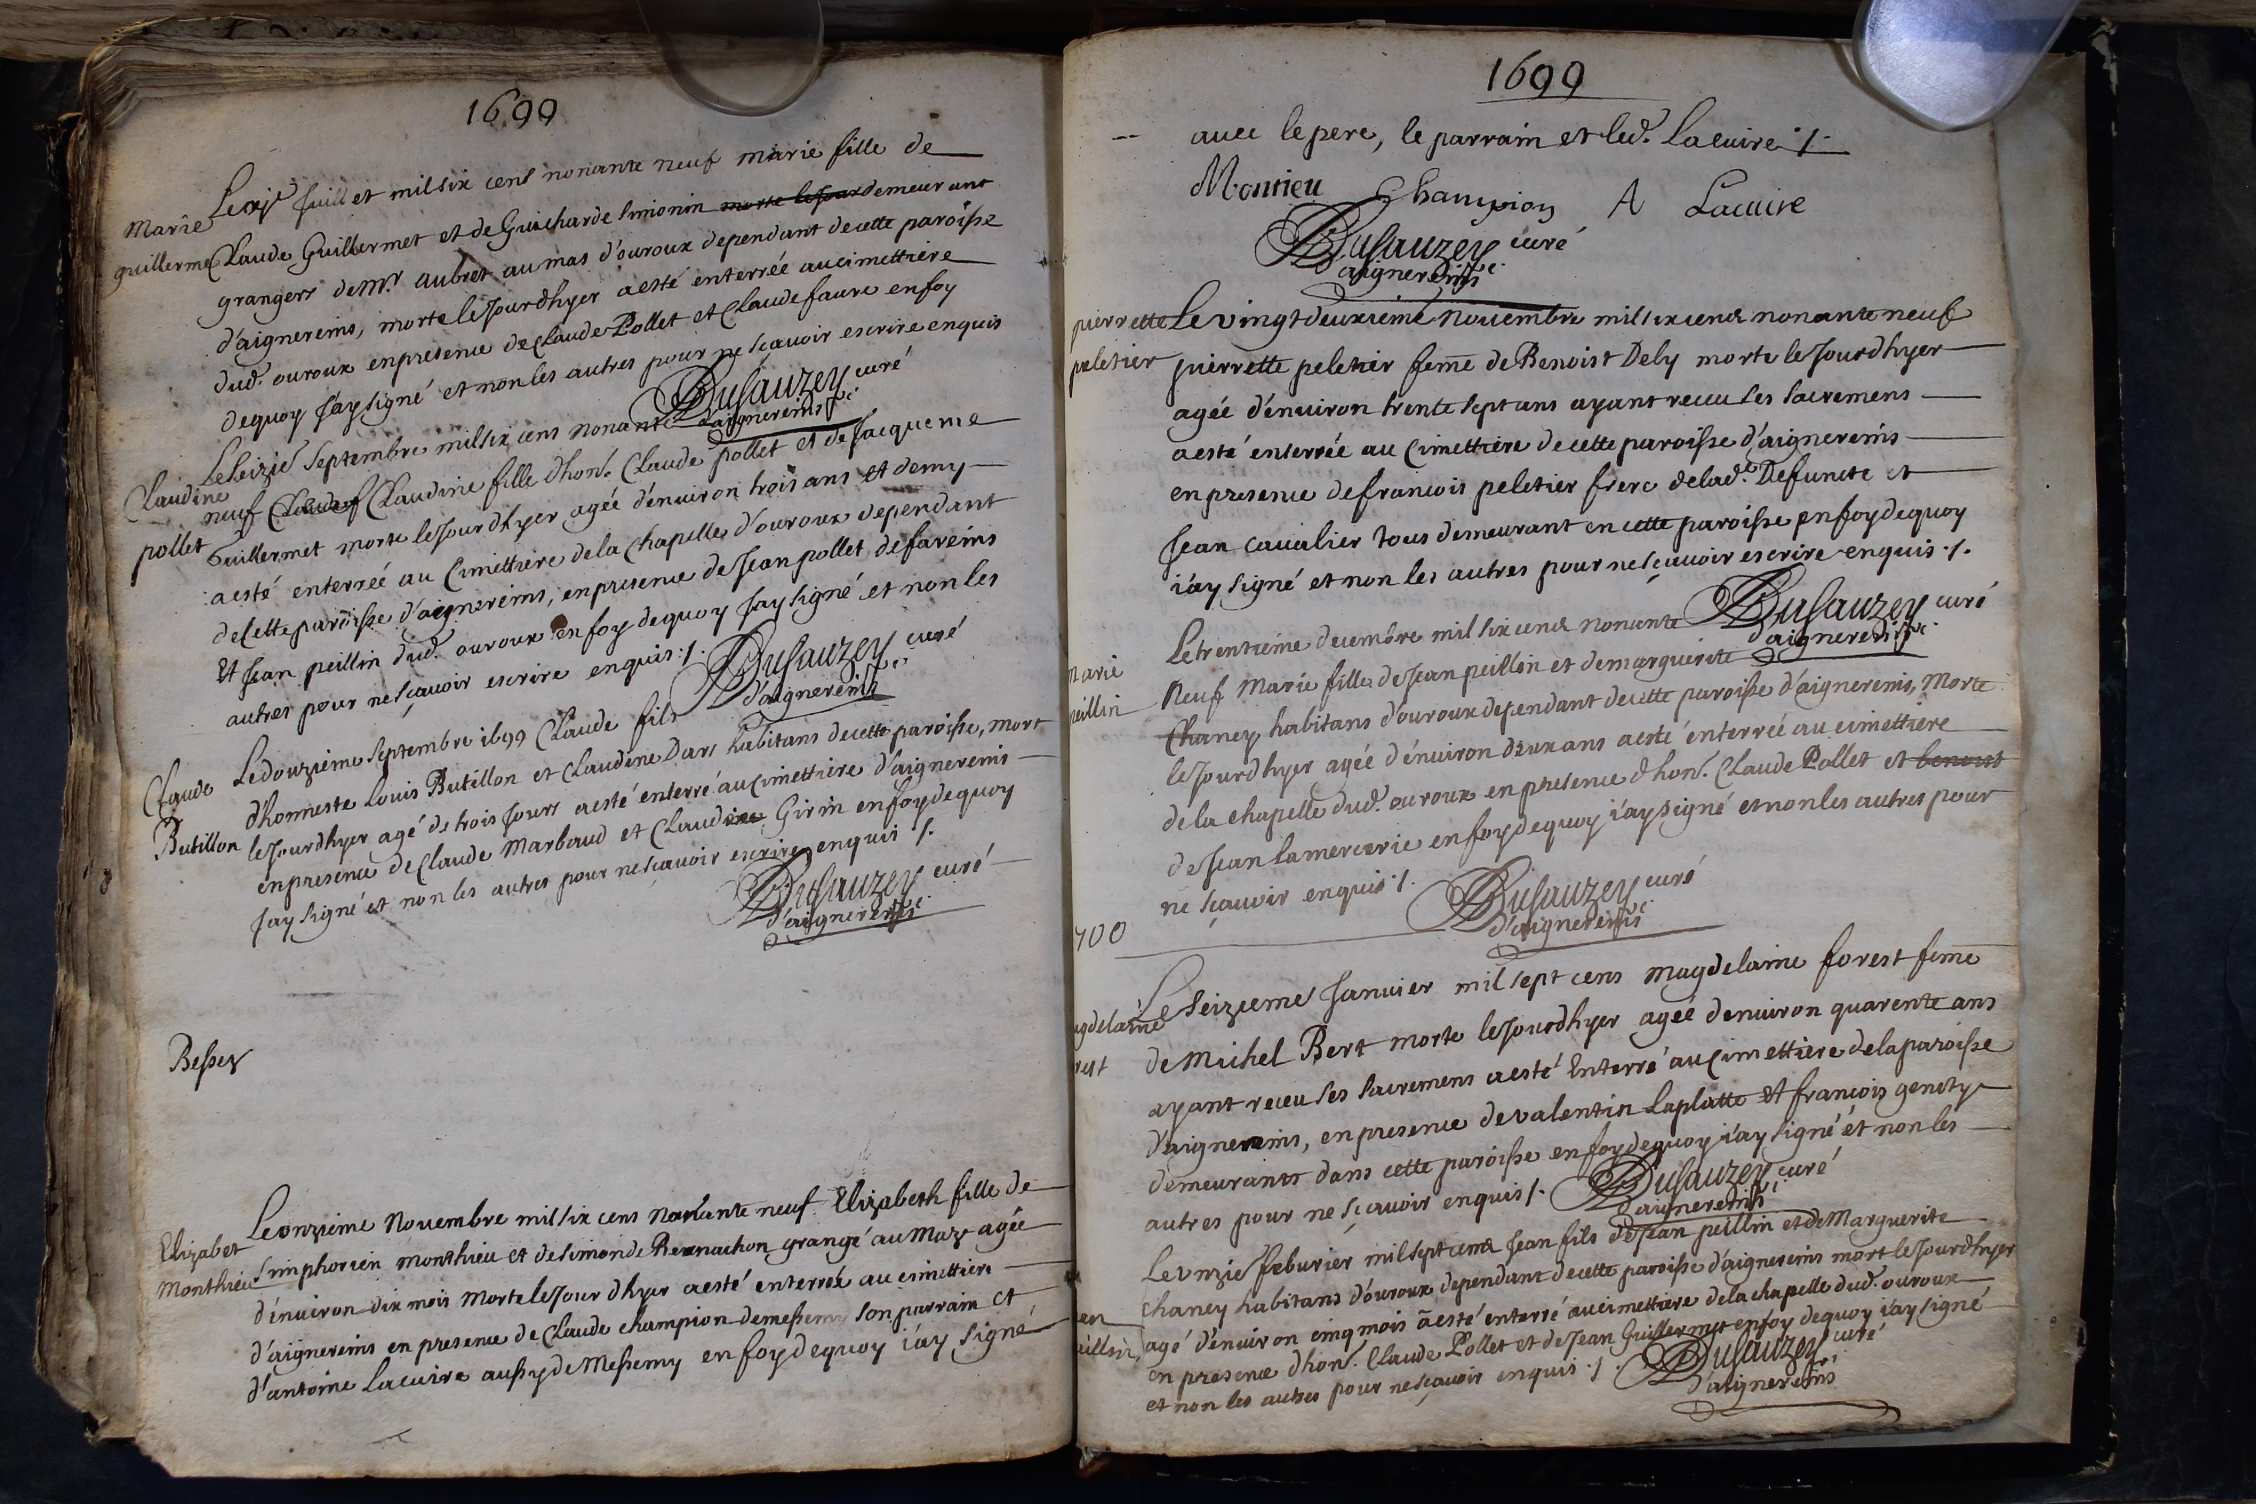 1699
Marie
guillerme
Le xje Juillet mil six cens nonante neuf marie fille de
Claude Guillermet et de Guicharde Simonin morte le Jour demeurant
grangers de Mr. aubret au mas d'ouroux dependant de cette paroisse
d'aignereins, morte le Jourdhyer a esté enterrée au cimettiere
dud. ouroux en presence de Claude Pollet et Claude faure en foy
de quoy J'ay signé et non les autres pour ne sçavoir escrire enquis
Dusauzey curé
d'aignereins
Claudine
pollet
Le seizie Septembre mil six cens nonante
neuf Claudef Claudine fille d'hon. Claude pollet et de Jacqueme
Guillermet morte le Jourdhyer agée d'enuiron trois ans et demy
a esté enterreé au Cimettiere de la Chapelle d'ouroux dependant
de Cette paroisse d'aignereins, en presence de Jean pollet de fareins
Et Jean peillin dud. ouroux en foy de quoy J'ay signé et non les
autres pour ne sçauoir escrire enquis ./.
Dusauzey curé
d'aignereins
Claude
Butillon
Le douzieme Septembre 1699 Claude fils
d'honneste Louis Butillon et Claudine Dars habitans de cette paroisse, mort
le Jourdhyer agé de trois Jours a esté enterré au Cimettiere d'aignereins
en presence de Claude Marbaud et Claudine Girin en foy de quoy
J'ay signé et non les autres pour ne sçauoir escrire enquis ./.
Dusauzey curé
d'aignereins
Bessey
Elizabet
Monthieu
Le onzieme Nouembre mil six cens nonante neuf Elizabeth fille de
Simphorien monthieu et de simonde Bernachon grangé au Maz agée
d'enuiron dix mois morte le Jour dhyer a esté enterrée au cimettiere
d'aignereins en presence de Claude champion de messemy son parrain et
d'antoine Lacuire aussy de Messemy en foy de quoy i'ay signé
1699
auec le pere, le parrain et led. Lacuire ./.
Montieu Champion A Lacuire
Dusauzey curé
d'aignereins
pierrette
peletier
Le vingt deuxieme Nouembre mil six cens nonante neuf
pierrette peletier feme de Benoist Dely morte le Jourdhyer
agée d'enuiron trente sept ans ayant receu ses sacremens
a esté enterrée au Cimettiere de cette paroisse d'aignereins
en presence de francois peletier frere de lad.e Defuncte et
Jean caualier tous demeurant en cette paroisse en foy de quoy
i'ay signé et non les autres pour ne sçauoir escrire enquis ./.
Dusauzey curé
d'aignereins
Marie
peillin
Le trentieme decembre mil six cens nonante
Neuf Marie fille de Jean peillin et de marguerite
Chaney habitans d'ouroux dependant de cette paroisse d'aignereins, Morte
le Jourdhyer agée d'enuiron deux ans a esté enterreé au cimettiere
de la chapelle dud. ouroux en presence d'hon. Claude Pollet et benoist
de Jean Lamercerie en foy de quoy i'ay signé et non les autres pour
ne sçauoir enquis ./.
Dusauzey curé
d'aignereins
700
agdelaine
rest
Le Seizieme Januier mil sept cens magdelaine forest feme
de Michel Bert morte le Jourdhyer agée d'enuiron quarente ans
ayant receu ses sacremens a esté Enterré au Cimettiere de la paroisse
d'aignereins, en presence de valentin Laplatte et francois genety
demeurants dans cette paroisse en foy de quoy i'ay signé et non les
autres pour ne sçauoir enquis ./.
Dusauzey curé
d'aignereins
ean
eillin
Le onzie feburier mil sept cens Jean fils de Jean peillin et de Marguerite
chaney habitans d'ouroux dependant de cette paroisse d'aignereins mort le Jourdhyer
agé d'enuiron cinq mois a esté enterré au cimettiere de la chapelle dud. ouroux
en presence d'hon. Claude Pollet et de Jean Guillermet en foy de quoy i'ay signé
et non les autres pour ne sçauoir enquis ./.
Dusauzey curé
d'aignereins